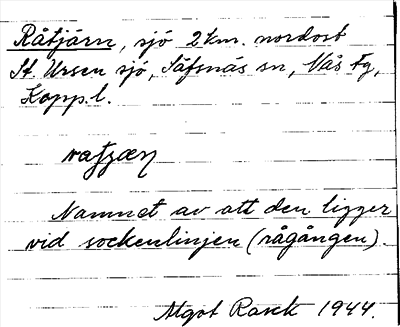 Råtjärn, sjö 2 km. nordost
St. Ursen sjö, Säfsnäs sn, Nås fg,
Kopp. l.
Namnet av att den ligger
vid sockenlinjen (rågången).
Algot Rask 1944.